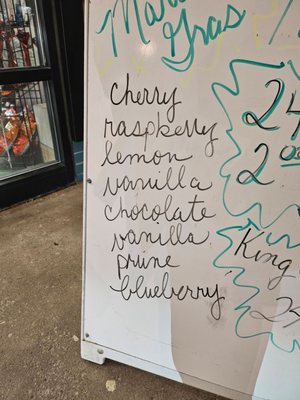 Mardi
Gras
cherry
raspberry
lemon
vanilla
chocolate
vanilla
prune
blueberry
24
2.
King